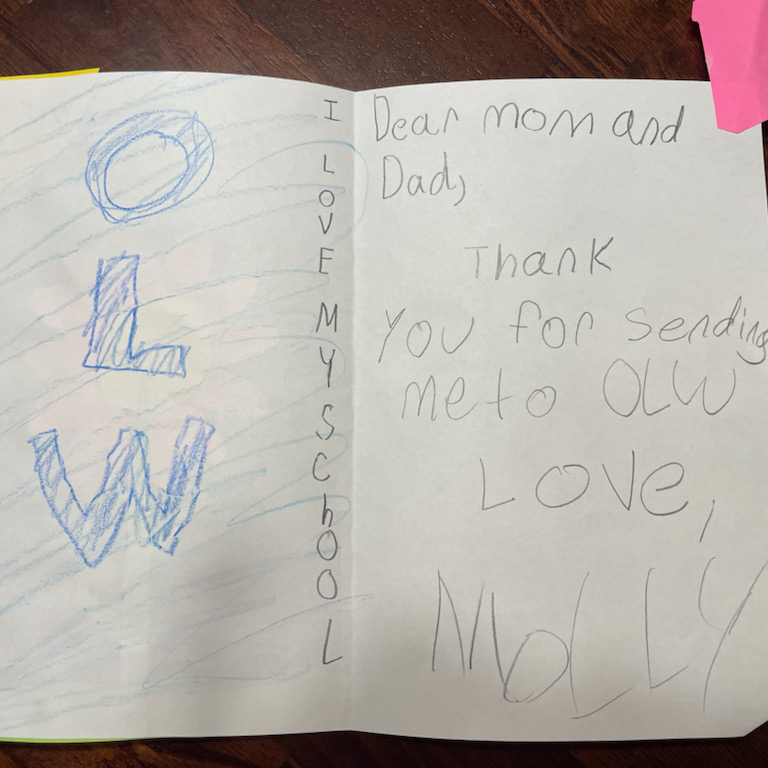 O
L
W
I
L
O
V
E
M
Y
S
C
h
O
O
L
Dear mom and
Dad,
Thank
You for sending
me to OLW
Love,
MOLLY